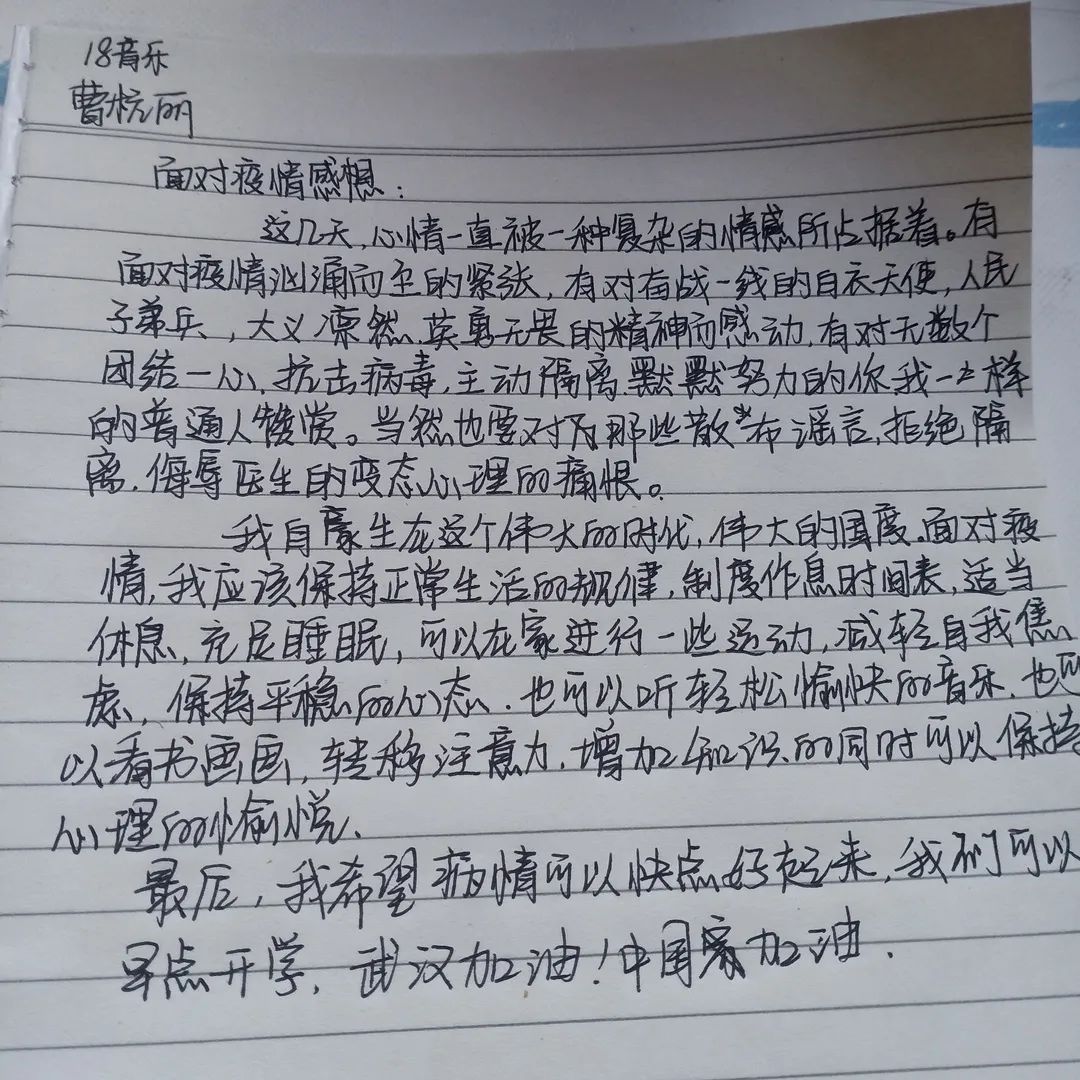 18音乐
曹杭丽
面对疫情感想：
这几天，心情一直被一种复杂的情感所占据着。有
面对疫情汹涌而至的紧张，有对奋战一线的白衣天使，人民
子弟兵，大义凛然.英勇无畏的精神而感动，有对无数个
团结一心，抗击病毒，主动隔离.默默努力的你我一样
的普通人赞赏。当然也要对那些散布谣言，拒绝隔
离.侮辱医生的变态心理的痛恨。
我自豪生在这个伟大的时代，伟大的国度。面对疫
情，我应该保持正常生活的规律，制度作息时间表，适当
休息，充足睡眠，可以在家进行一些运动，减轻自我焦
虑，保持平稳的心态.也可以听轻松愉快的音乐.也可
以看书画画，转移注意力.增加知识的同时可以保持
心理的愉悦.
最后，我希望病情可以快点好起来，我们可以
早点开学，武汉加油！中国加油.